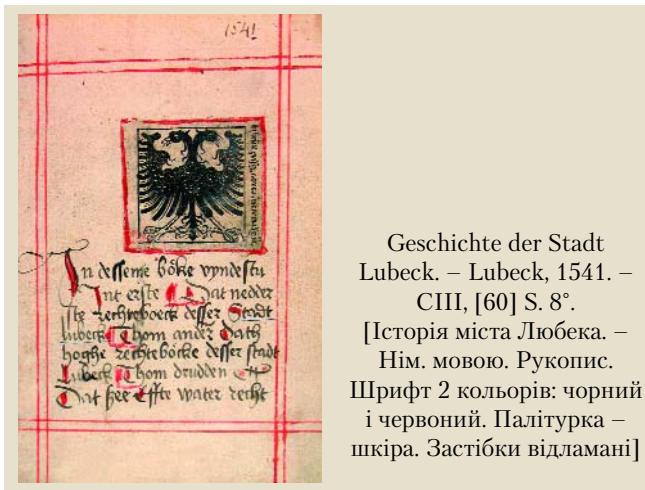 1541
In desseme böke vyndestu
Int erste Dat nedder
ste rechteboeck desser Stadt
lubeck Thom ander Dath
hoghe rechteböcke desser stadt
Lubeck Thom drudden
Dat see effte water recht
Geschichte der Stadt
Lubeck. – Lubeck, 1541. –
CIII, [60] S. 8°.
[Історія міста Любека. –
Нім. мовою. Рукопис.
Шрифт 2 кольорів: чорний
і червоний. Палітурка –
шкіра. Застібки відламані]